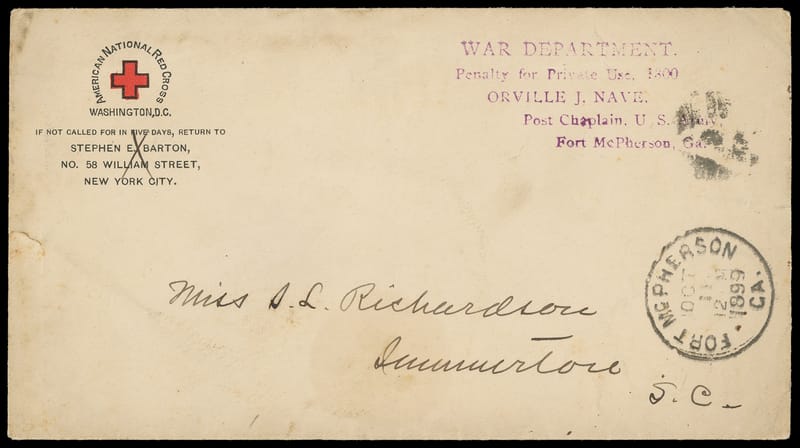 AMERICAN NATIONAL RED CROSS
WASHINGTON, D.C.
IF NOT CALLED FOR IN FIVE DAYS, RETURN TO
STEPHEN E. BARTON,
NO. 58 WILLIAM STREET,
NEW YORK CITY.
WAR DEPARTMENT.
Penalty for Private Use, 1300
ORVILLE J. NAVE.
Post Chaplain, U. S. Army,
Fort McPherson, Ga.
FORT MCPHERSON GA.
OCT
11
12 M
1899
Miss S. L. Richardson
Summerton
S. C.